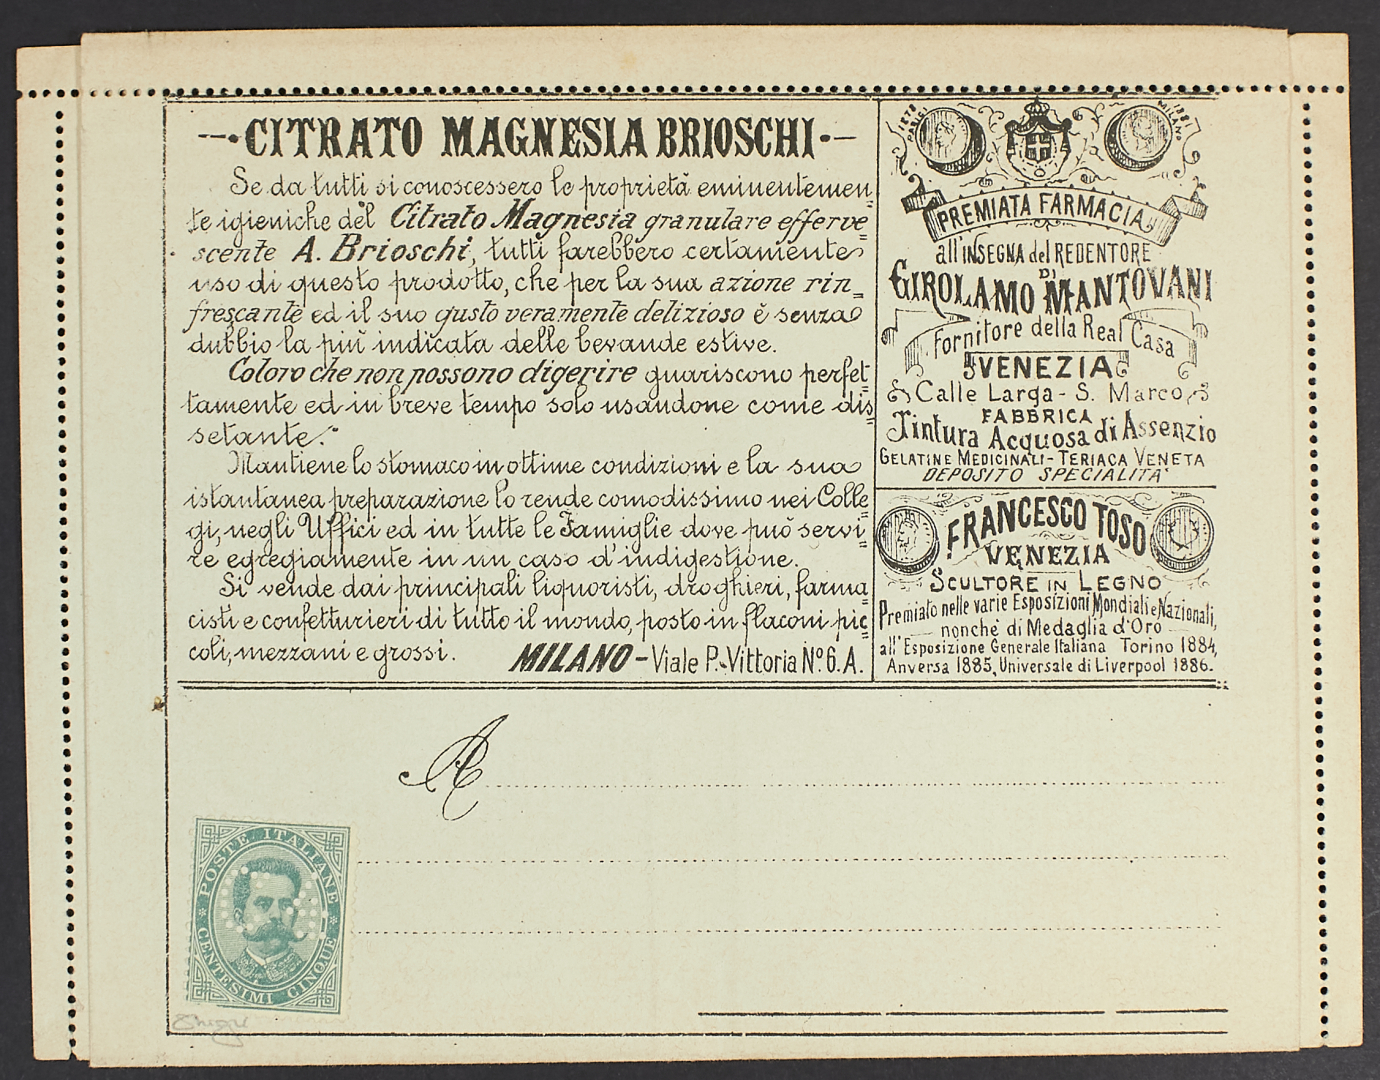 CITRATO MAGNESIA BRIOSCHI
Se da tutti si conoscessero le proprietà eminentemen=
te igieniche del Citrato Magnesia granulare efferve=
scente A. Brioschi, tutti farebbero certamente
uso di questo prodotto, che per la sua azione rin=
frescante ed il suo gusto veramente delizioso è senza
dubbio la più indicata delle bevande estive.
Coloro che non possono digerire guariscono perfet=
tamente ed in breve tempo solo usandone come dis=
setante.
Mantiene lo stomaco in ottime condizioni e la sua
istantanea preparazione lo rende comodissimo nei Colle=
gi, negli Uffici ed in tutte le Famiglie dove può servi=
re egregiamente in un caso d'indigestione.
Si vende dai principali liquoristi, droghieri, farma=
cisti e confetturieri di tutto il mondo, posto in flaconi pic=
coli, mezzani e grossi.
MILANO - Viale P. Vittoria Nº 6. A.
1878
PARIGI
1881
MILANO
PREMIATA FARMACIA
all'INSEGNA del REDENTORE
DI
GIROLAMO MANTOVANI
Fornitore della Real Casa
VENEZIA
Calle Larga - S. Marco
FABBRICA
Tintura Acquosa di Assenzio
GELATINE MEDICINALI - TERIACA VENETA
DEPOSITO SPECIALITA'
FRANCESCO TOSO
VENEZIA
SCULTORE IN LEGNO
Premiato nelle varie Esposizioni Mondiali e Nazionali,
nonchè di Medaglia d'Oro
all'Esposizione Generale Italiana Torino 1884,
Anversa 1885, Universale di Liverpool 1886.
A
POSTE ITALIANE
CENTESIMI CINQUE